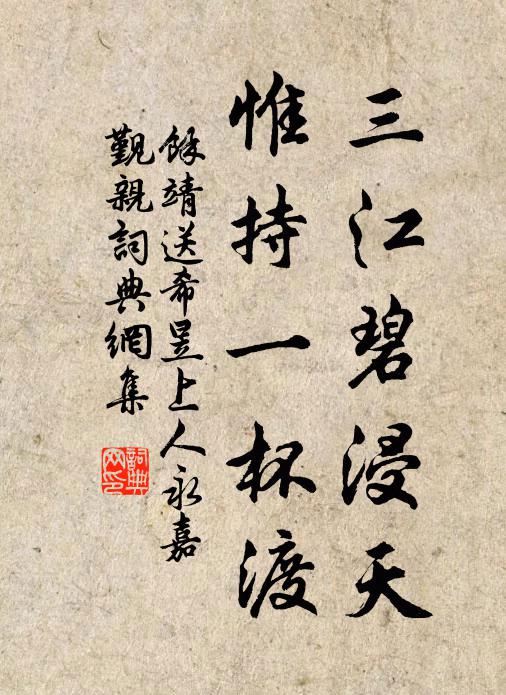 三江碧浸天
惟持一杯渡
餘靖送希昱上人永嘉
覲親詞典網集
詞典
网印